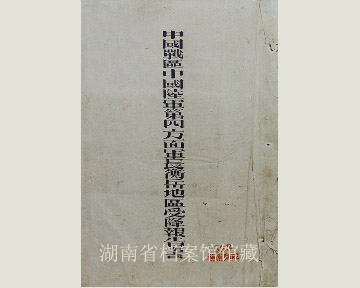 中國戰區中國陸軍第四方面軍長衡岳地區受降報告書
湖南省档案馆馆藏